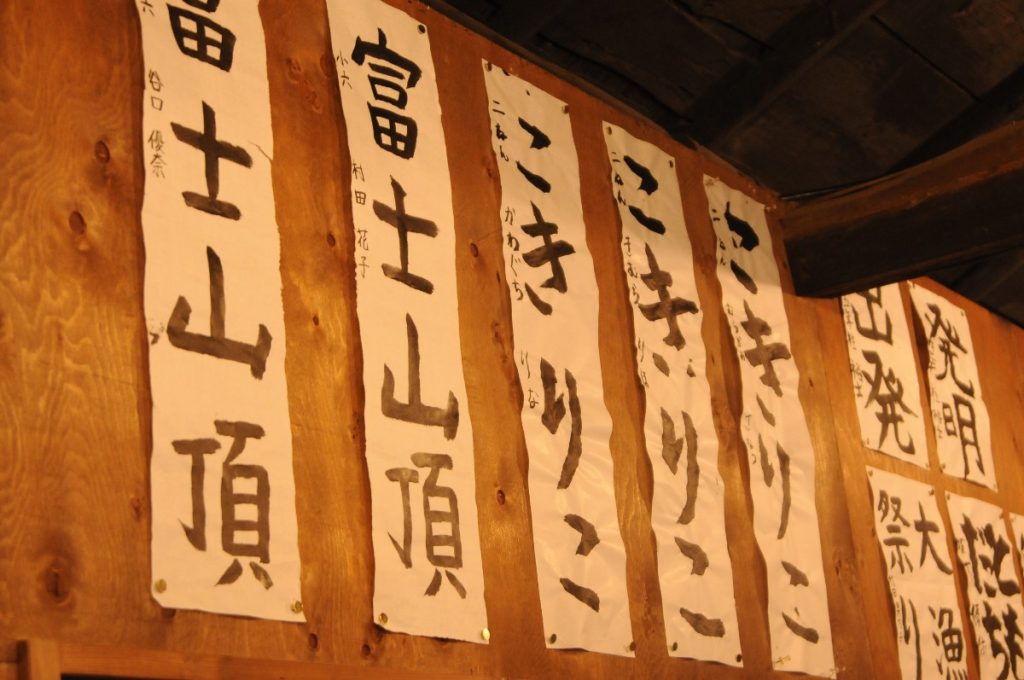 富士山頂
六 谷口 優奈
富士山頂
小六 村田 花子
こきりこ
二ねん かわぐち りな
こきりこ
二ねん きむら
こきりこ
二ねん
出発
発明
大漁
祭り